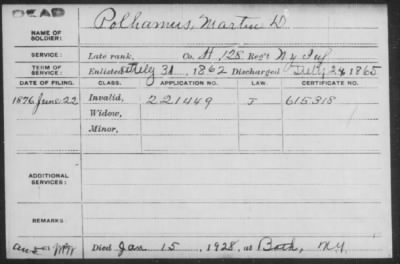 DEAD
NAME OF SOLDIER:
Polhamus, Martin D
SERVICE:
Late rank, Co. H 128 Reg't N Y Inf
TERM OF SERVICE:
Enlisted July 31, 1862 Discharged July 28 1865
DATE OF FILING. CLASS. APPLICATION NO. LAW. CERTIFICATE NO.
1876 June 22 Invalid, 221449 J 615318
Widow,
Minor,
ADDITIONAL SERVICES:
REMARKS:
Died Jan 15, 1928, at Bath, N.Y.